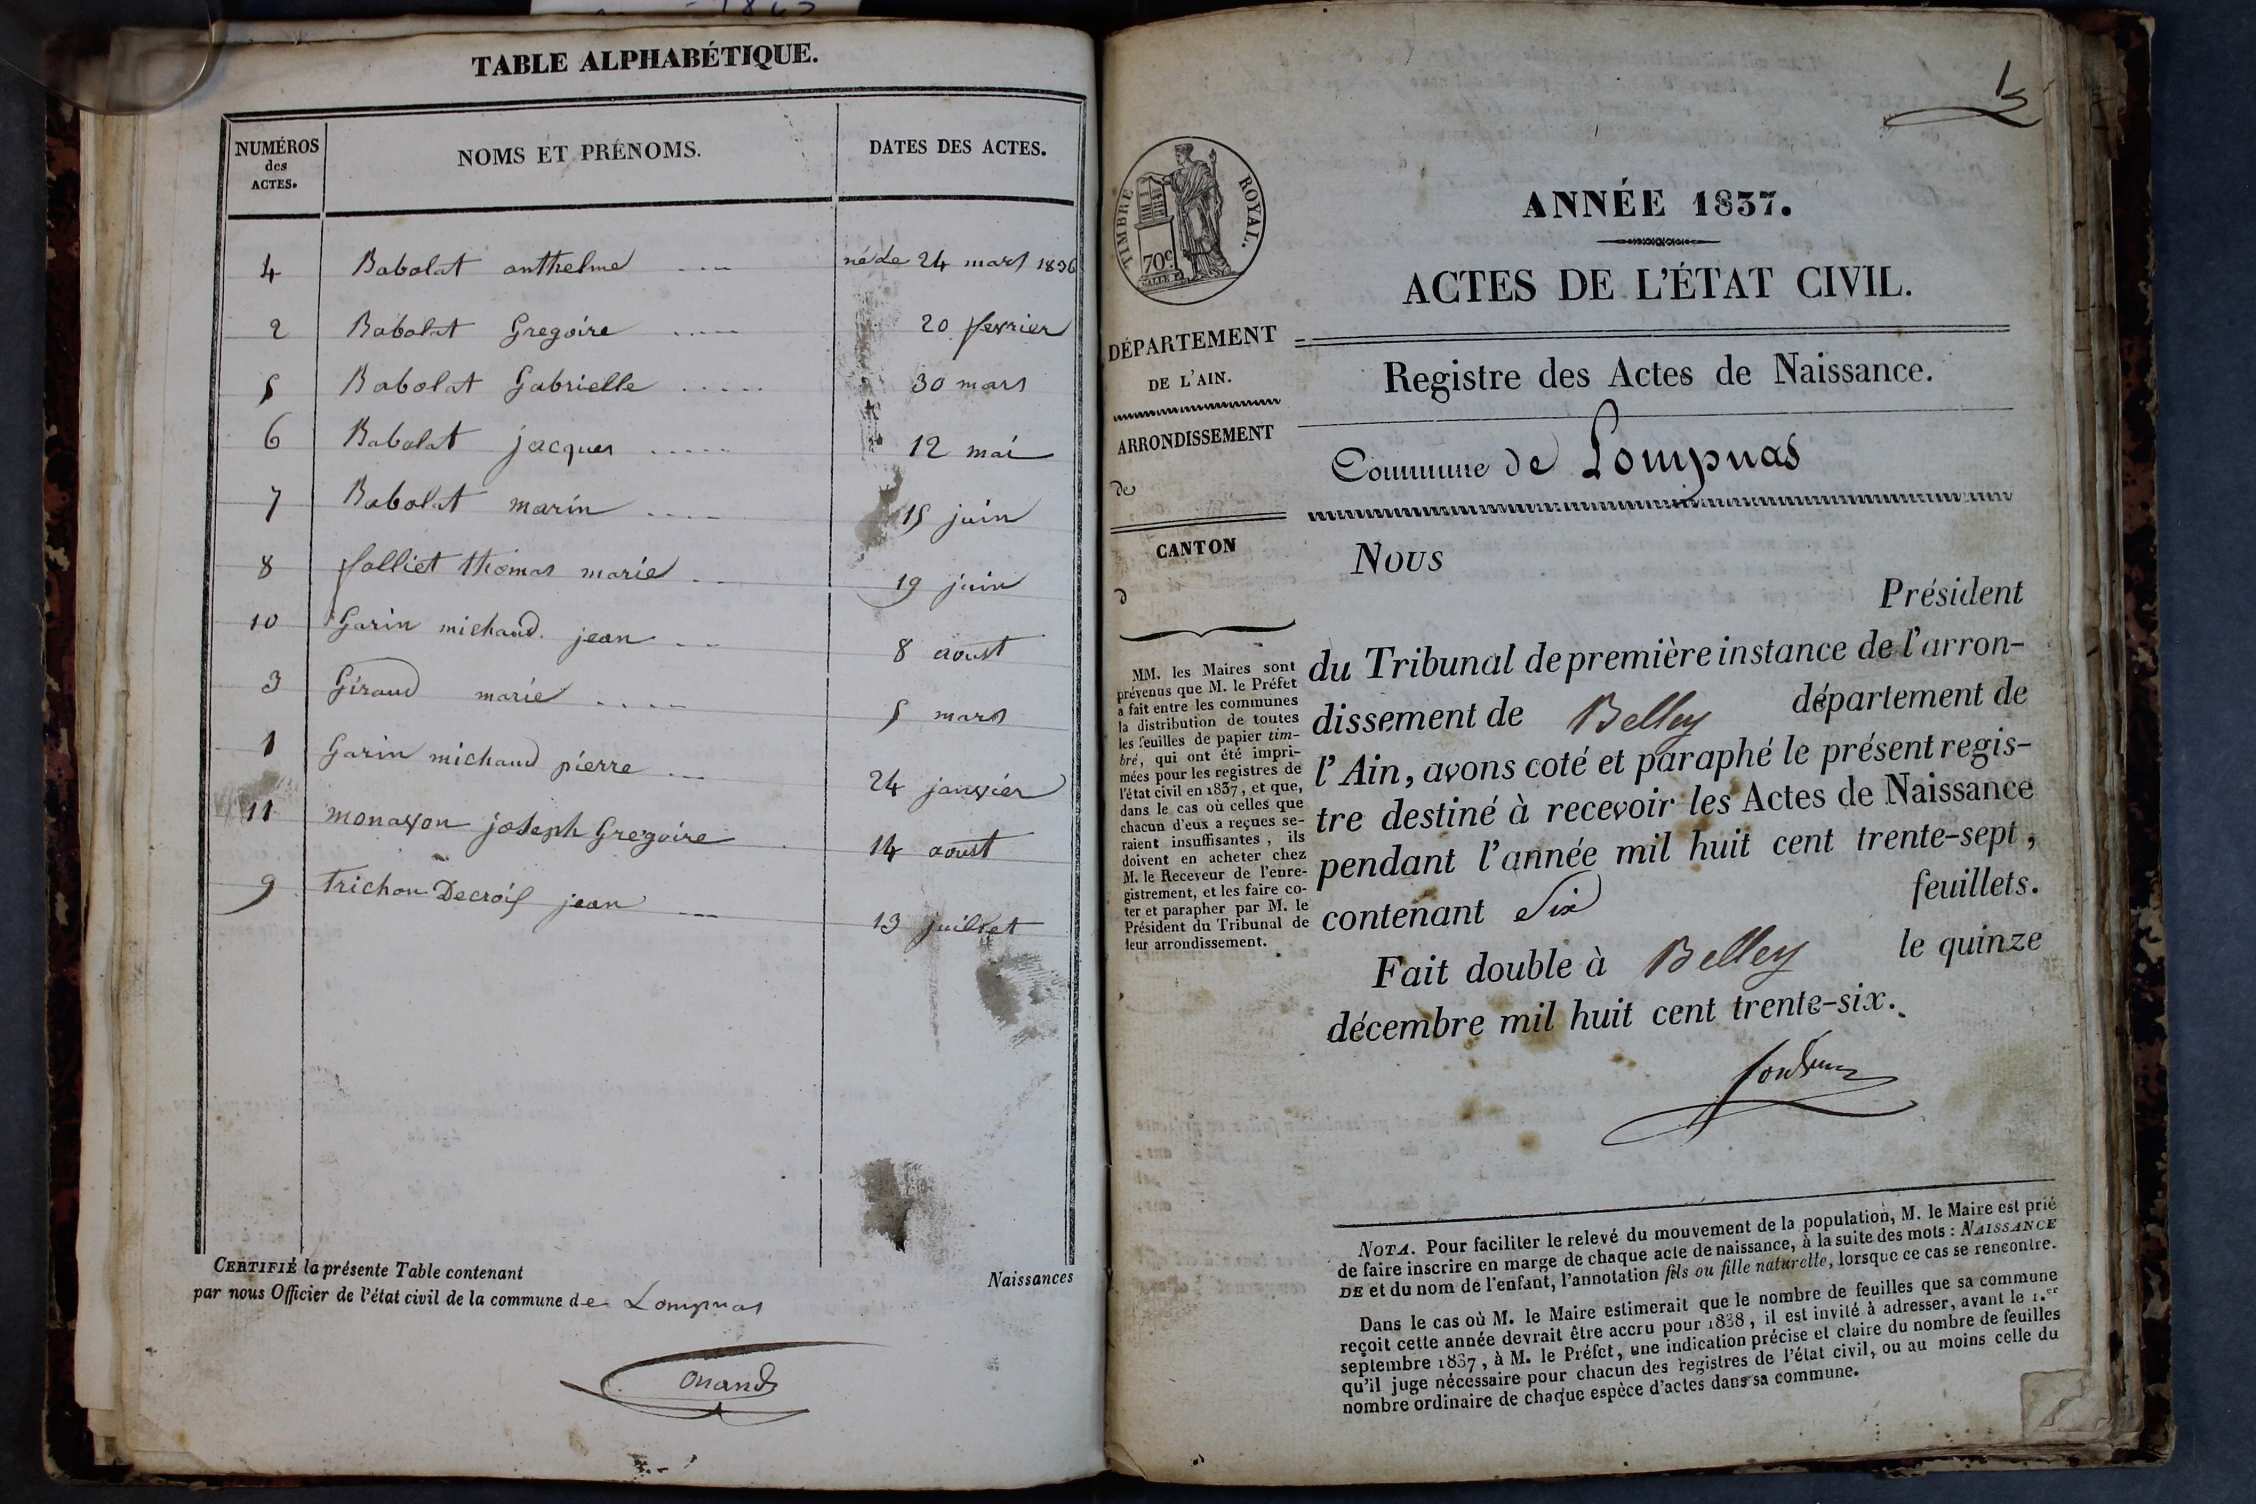 TABLE ALPHABÉTIQUE.
NUMÉROS
des
ACTES.
NOMS ET PRÉNOMS.
DATES DES ACTES.
4 Babolat anthelme né Le 24 mars 1836
2 Babolat Gregoire 20 fevrier
5 Babolat Gabrielle 30 mars
6 Babolat jacques 12 mai
7 Babolat marin 15 juin
8 folliet thomas marie 19 juin
10 Garin michaud jean 8 aoust
3 Giraud marie 5 mars
1 Garin michaud pierre 24 janvier
11 monavon joseph Gregoire 14 aoust
9 Trichon Decrois jean 13 juillet
CERTIFIÉ la présente Table contenant Naissances
par nous Officier de l'état civil de la commune de Lompnas
TIMBRE ROYAL.
70c.
ANNÉE 1837.
ACTES DE L'ÉTAT CIVIL.
DÉPARTEMENT
DE L'AIN.
ARRONDISSEMENT
de
CANTON
d
MM. les Maires sont
prévenus que M. le Préfet
a fait entre les communes
la distribution de toutes
les feuilles de papier tim-
bré, qui ont été impri-
mées pour les registres de
l'état civil en 1837, et que,
dans le cas où celles que
chacun d'eux a reçues se-
raient insuffisantes, ils
doivent en acheter chez
M. le Receveur de l'enre-
gistrement, et les faire co-
ter et parapher par M. le
Président du Tribunal de
leur arrondissement.
Registre des Actes de Naissance.
Commune de Lompnas
Nous
Président
du Tribunal de première instance de l'arron-
dissement de Belley département de
l'Ain, avons coté et paraphé le présent regis-
tre destiné à recevoir les Actes de Naissance
pendant l'année mil huit cent trente-sept,
contenant Six feuillets.
Fait double à Belley le quinze
décembre mil huit cent trente-six.
NOTA. Pour faciliter le relevé du mouvement de la population, M. le Maire est prié
de faire inscrire en marge de chaque acte de naissance, à la suite des mots : NAISSANCE
DE et du nom de l'enfant, l'annotation fils ou fille naturelle, lorsque ce cas se rencontre.
Dans le cas où M. le Maire estimerait que le nombre de feuilles que sa commune
reçoit cette année devrait être accru pour 1838, il est invité à adresser, avant le 1.er
septembre 1837, à M. le Préfet, une indication précise et claire du nombre de feuilles
qu'il juge nécessaire pour chacun des registres de l'état civil, ou au moins celle du
nombre ordinaire de chaque espèce d'actes dans sa commune.